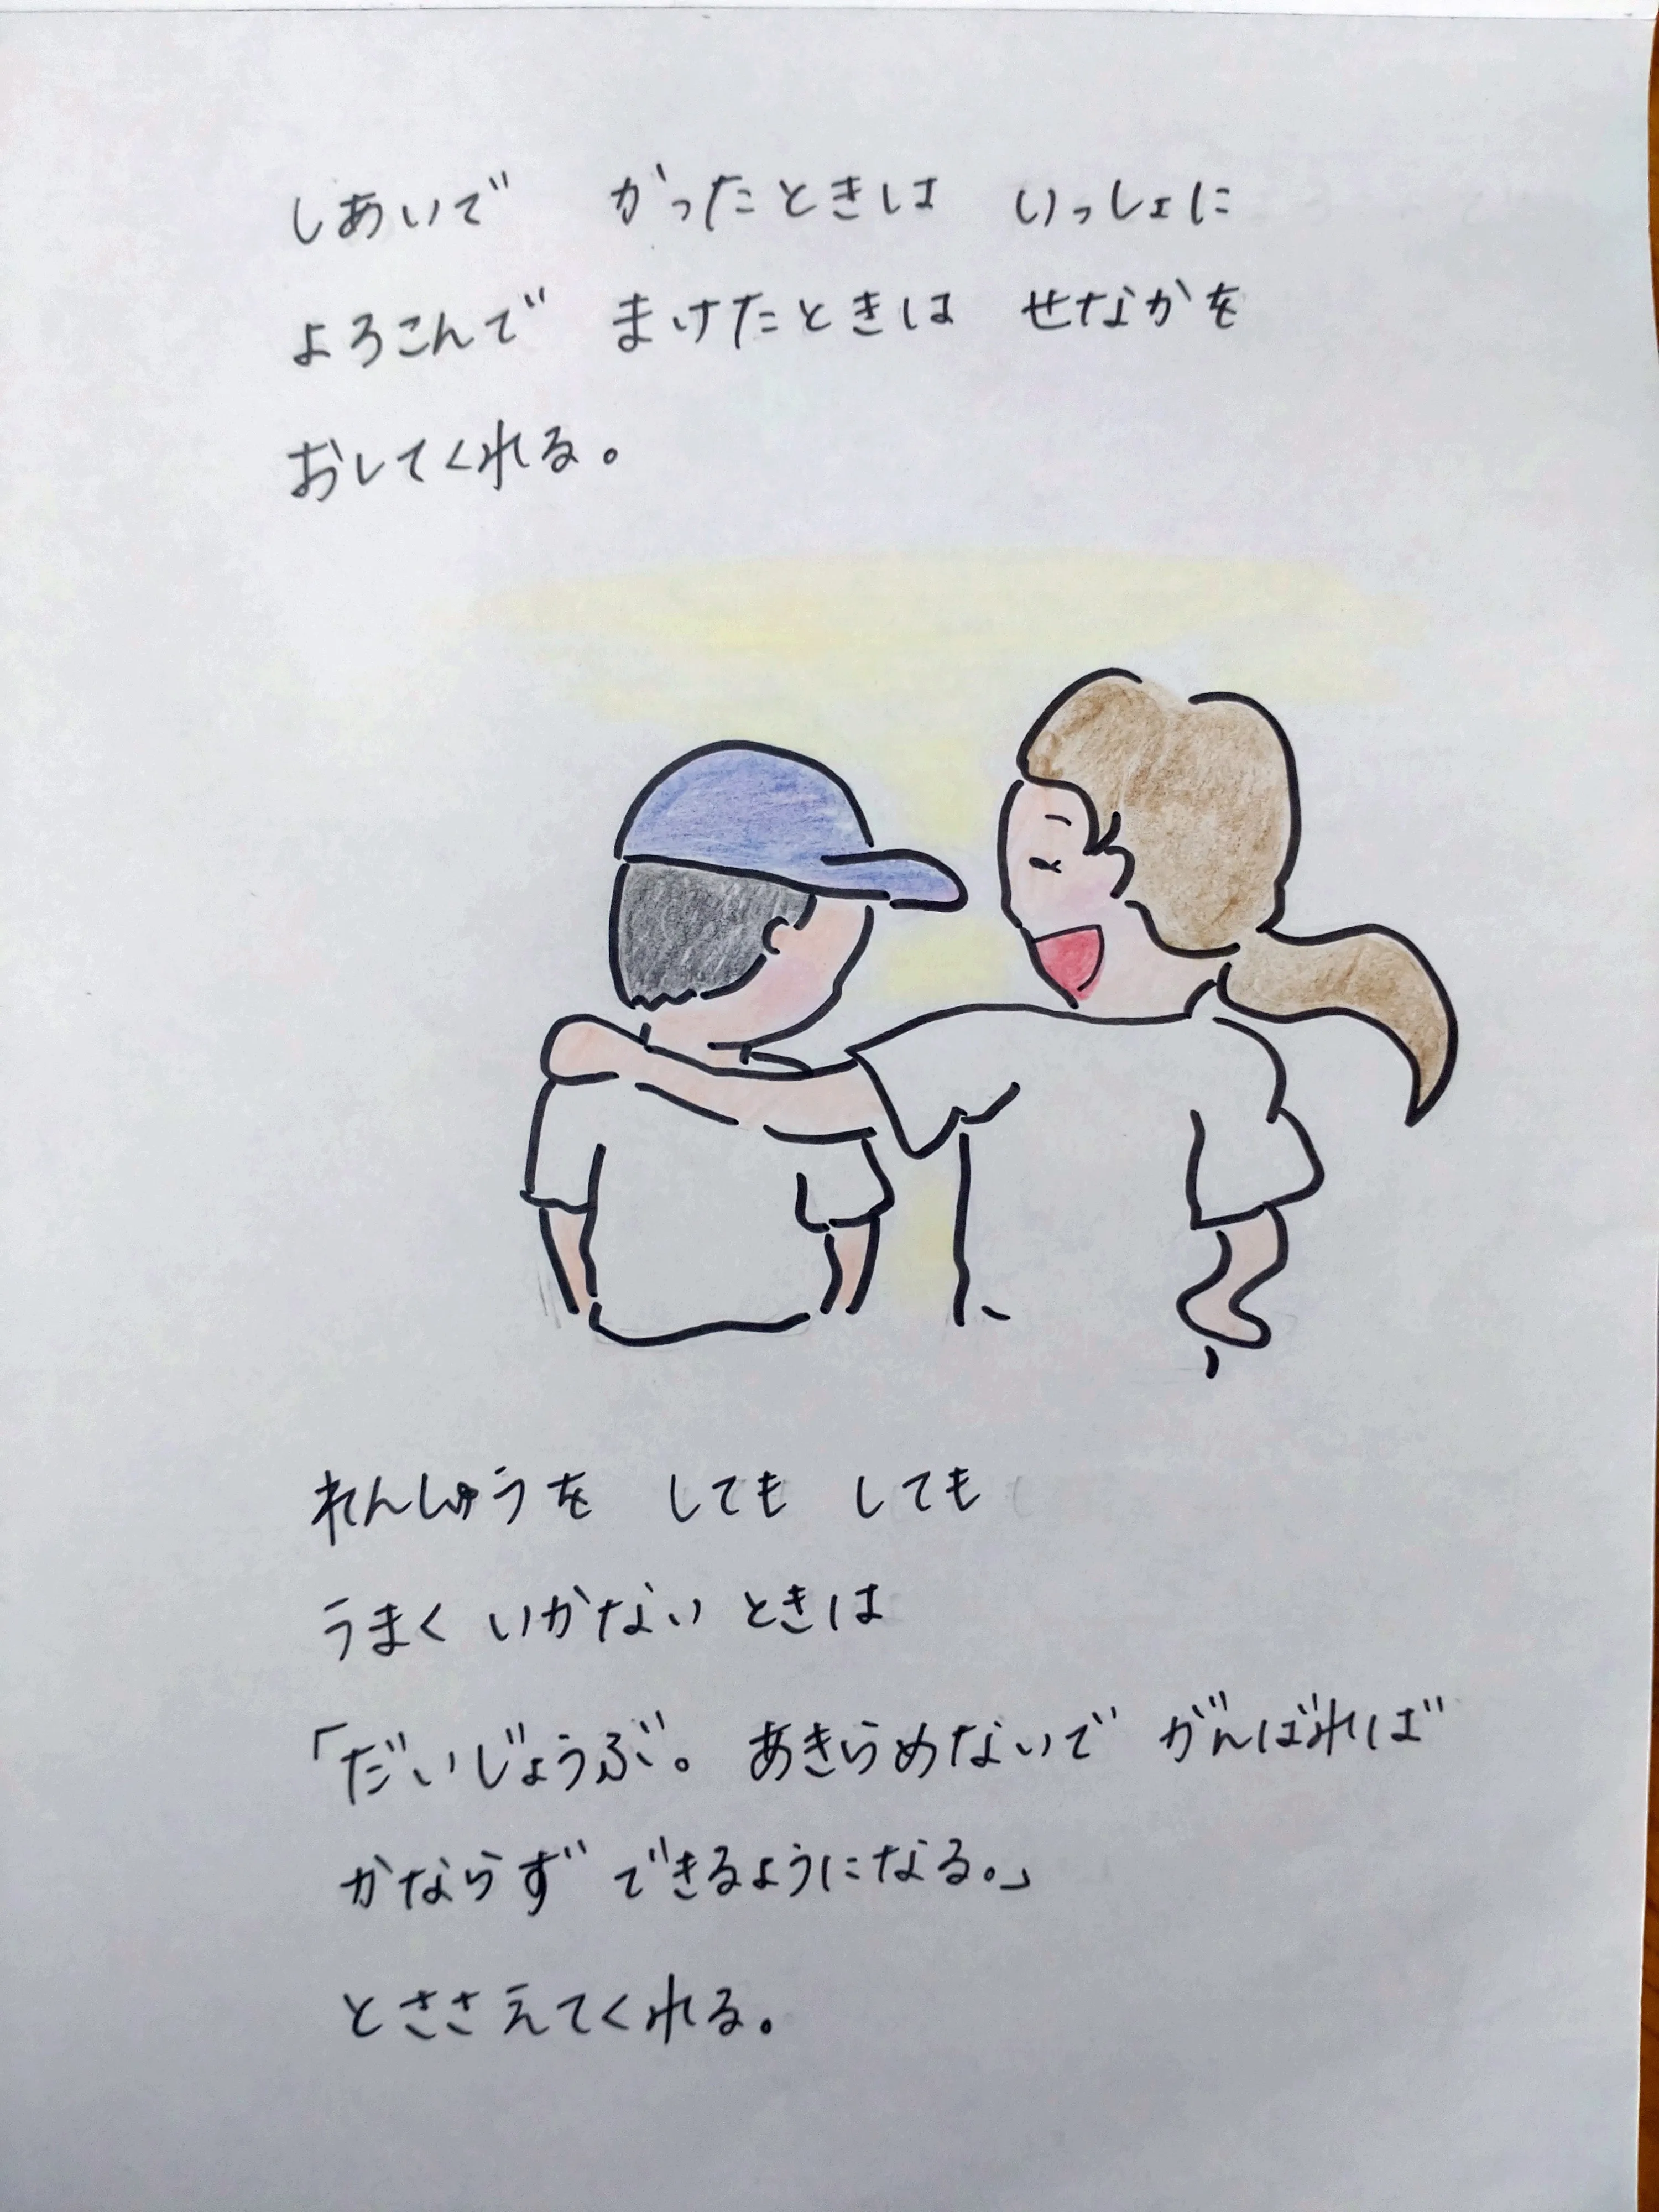 しあいで かったときは いっしょに
よろこんで まけたときは せなかを
おしてくれる。
れんしゅうを しても しても
うまく いかない ときは
「だいじょうぶ。 あきらめないで がんばれば
かならず できるようになる。」
とささえてくれる。